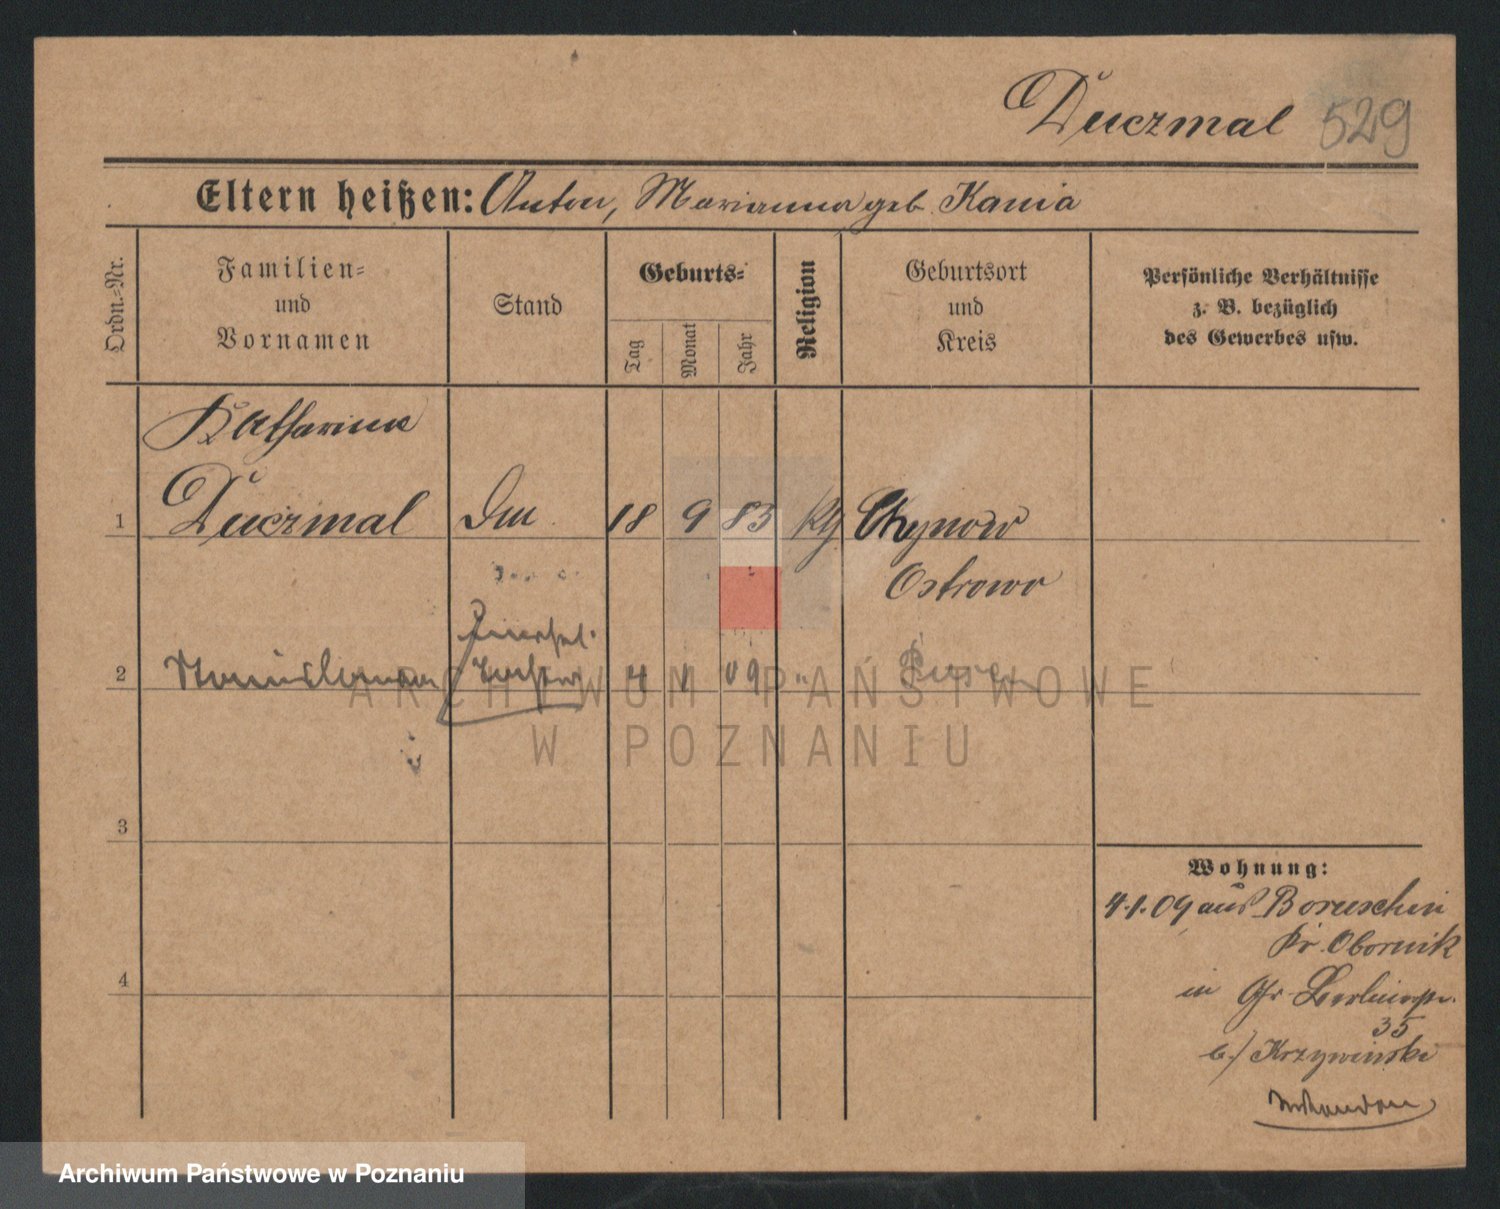 Duczmal 529
Eltern heißen: Anton, Marianna geb Kania
Ordn.-Nr.
Familien-
und
Vornamen
Stand
Geburts-
Tag
Monat
Jahr
Religion
Geburtsort
und
Kreis
Persönliche Verhältnisse
z. B. bezüglich
des Gewerbes usw.
Katharina
1 Duczmal 18 9 83 Chynow
Ostrowo
2 Tochter 4 1 09 " Posen
ARCHIWUM PAŃSTWOWE
W POZNANIU
3
Wohnung:
4.1.09 aus Boruschin
Kr. Obornik
4
in Gr Berlinerstr.
35
b/ Krzywinska
Archiwum Państwowe w Poznaniu